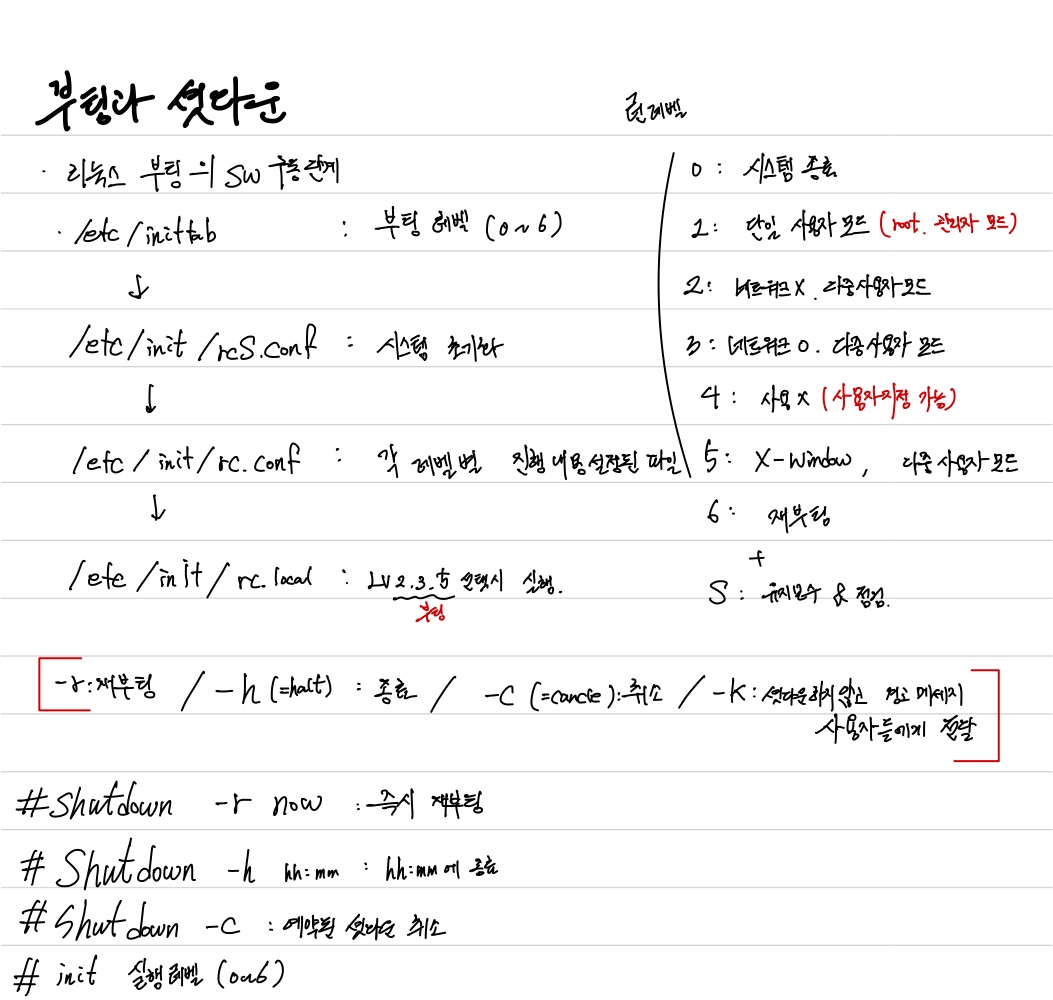 부팅과 셧다운
· 리눅스 부팅의 SW 구동단계
· /etc/inittab : 부팅 레벨 (0~6)
↓
/etc/init/rcS.conf : 시스템 초기화
↓
/etc/init/rc.conf : 각 레벨별 진행 내용 설정된 파일
↓
/etc/init/rc.local : LV 2.3.5 선택시 실행.
부팅
런레벨
0 : 시스템 종료
1 : 단일 사용자 모드 (root. 관리자 모드)
2 : 네트워크 X. 다중사용자모드
3 : 네트워크 O. 다중사용자 모드
4 : 사용 X (사용자지정 가능)
5 : X-Window, 다중 사용자 모드
6 : 재부팅
+
S : 유지보수 & 점검.
-r : 재부팅 / -h (=halt) : 종료 / -c (=cancle) : 취소 / -K : 셧다운하지 않고 경고 메세지
사용자들에게 전달
#Shutdown -r now : 즉시 재부팅
# Shutdown -h hh:mm : hh:mm에 종료
# Shutdown -c : 예약된 셧다운 취소
# init 실행레벨 (0~6)